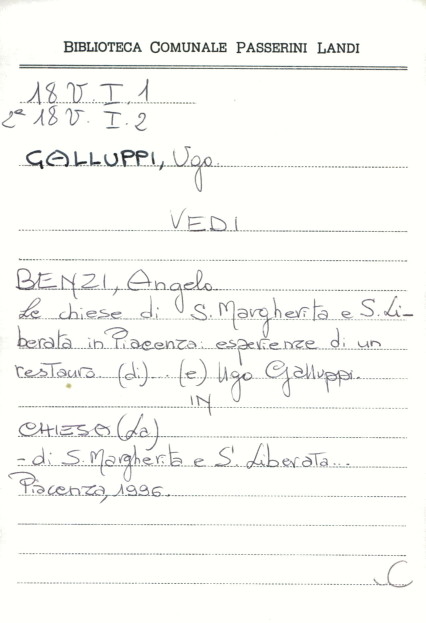 BIBLIOTECA COMUNALE PASSERINI LANDI
18 V. I. 1
2ª 18 V. I. 2
GALLUPPI, Ugo.
VEDI
BENZI, Angelo.
Le chiese di S. Margherita e S. Li-
berata in Piacenza: esperienze di un
restauro. (di)... (e) Ugo Galluppi.
IN
CHIESA (La)
- di S. Margherita e S. Liberata...
Piacenza, 1996.
C